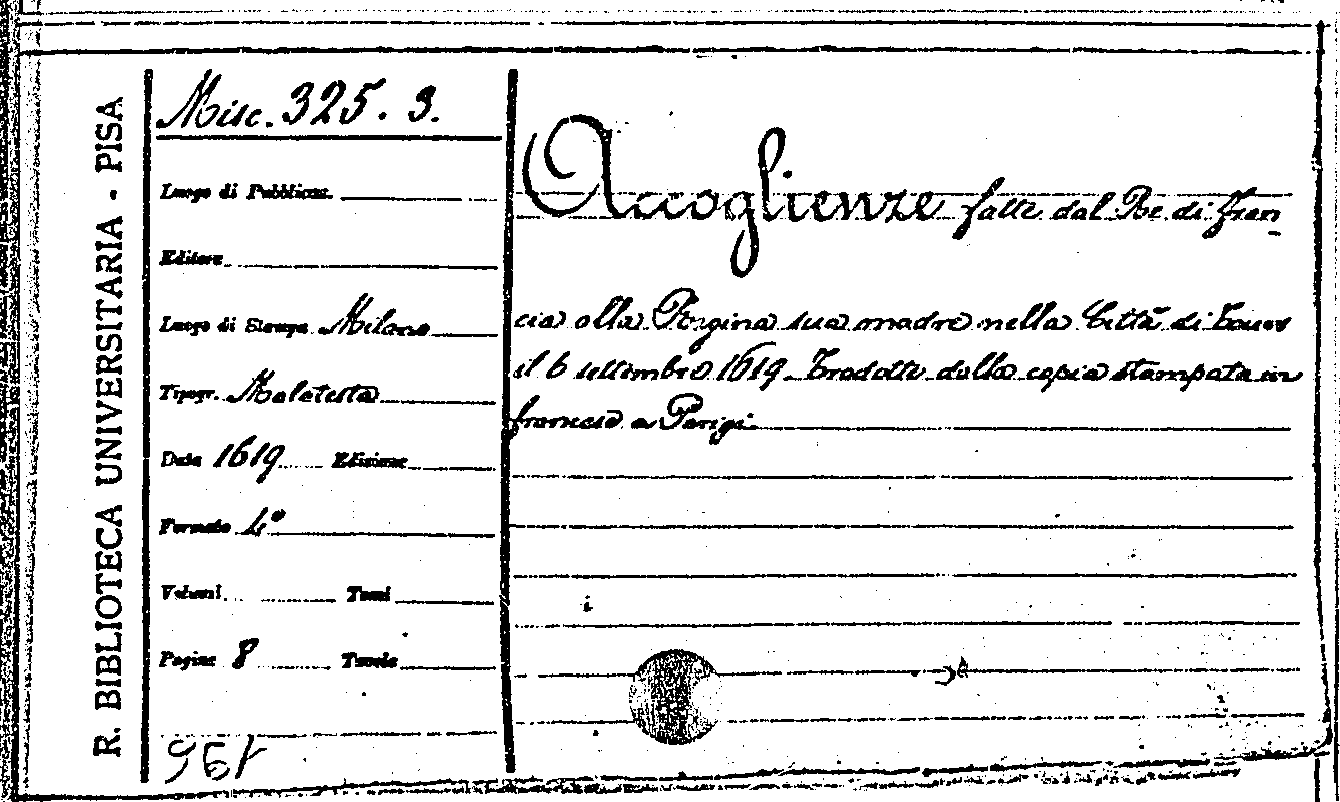 R. BIBLIOTECA UNIVERSITARIA - PISA
Misc. 325. 3.
Luogo di Pubblicaz.
Editore
Luogo di Stampa Milano
Tipogr. Malatesta
Data 1619 Edizione
Formato 4°
Volumi Tomi
Pagine 8 Tavole
Accoglienze fatte dal Re di Fran-
cia alla Regina sua madre nella Città di Tours
il 6 settembre 1619. Tradotte dalla copia stampata in
francese a Parigi.